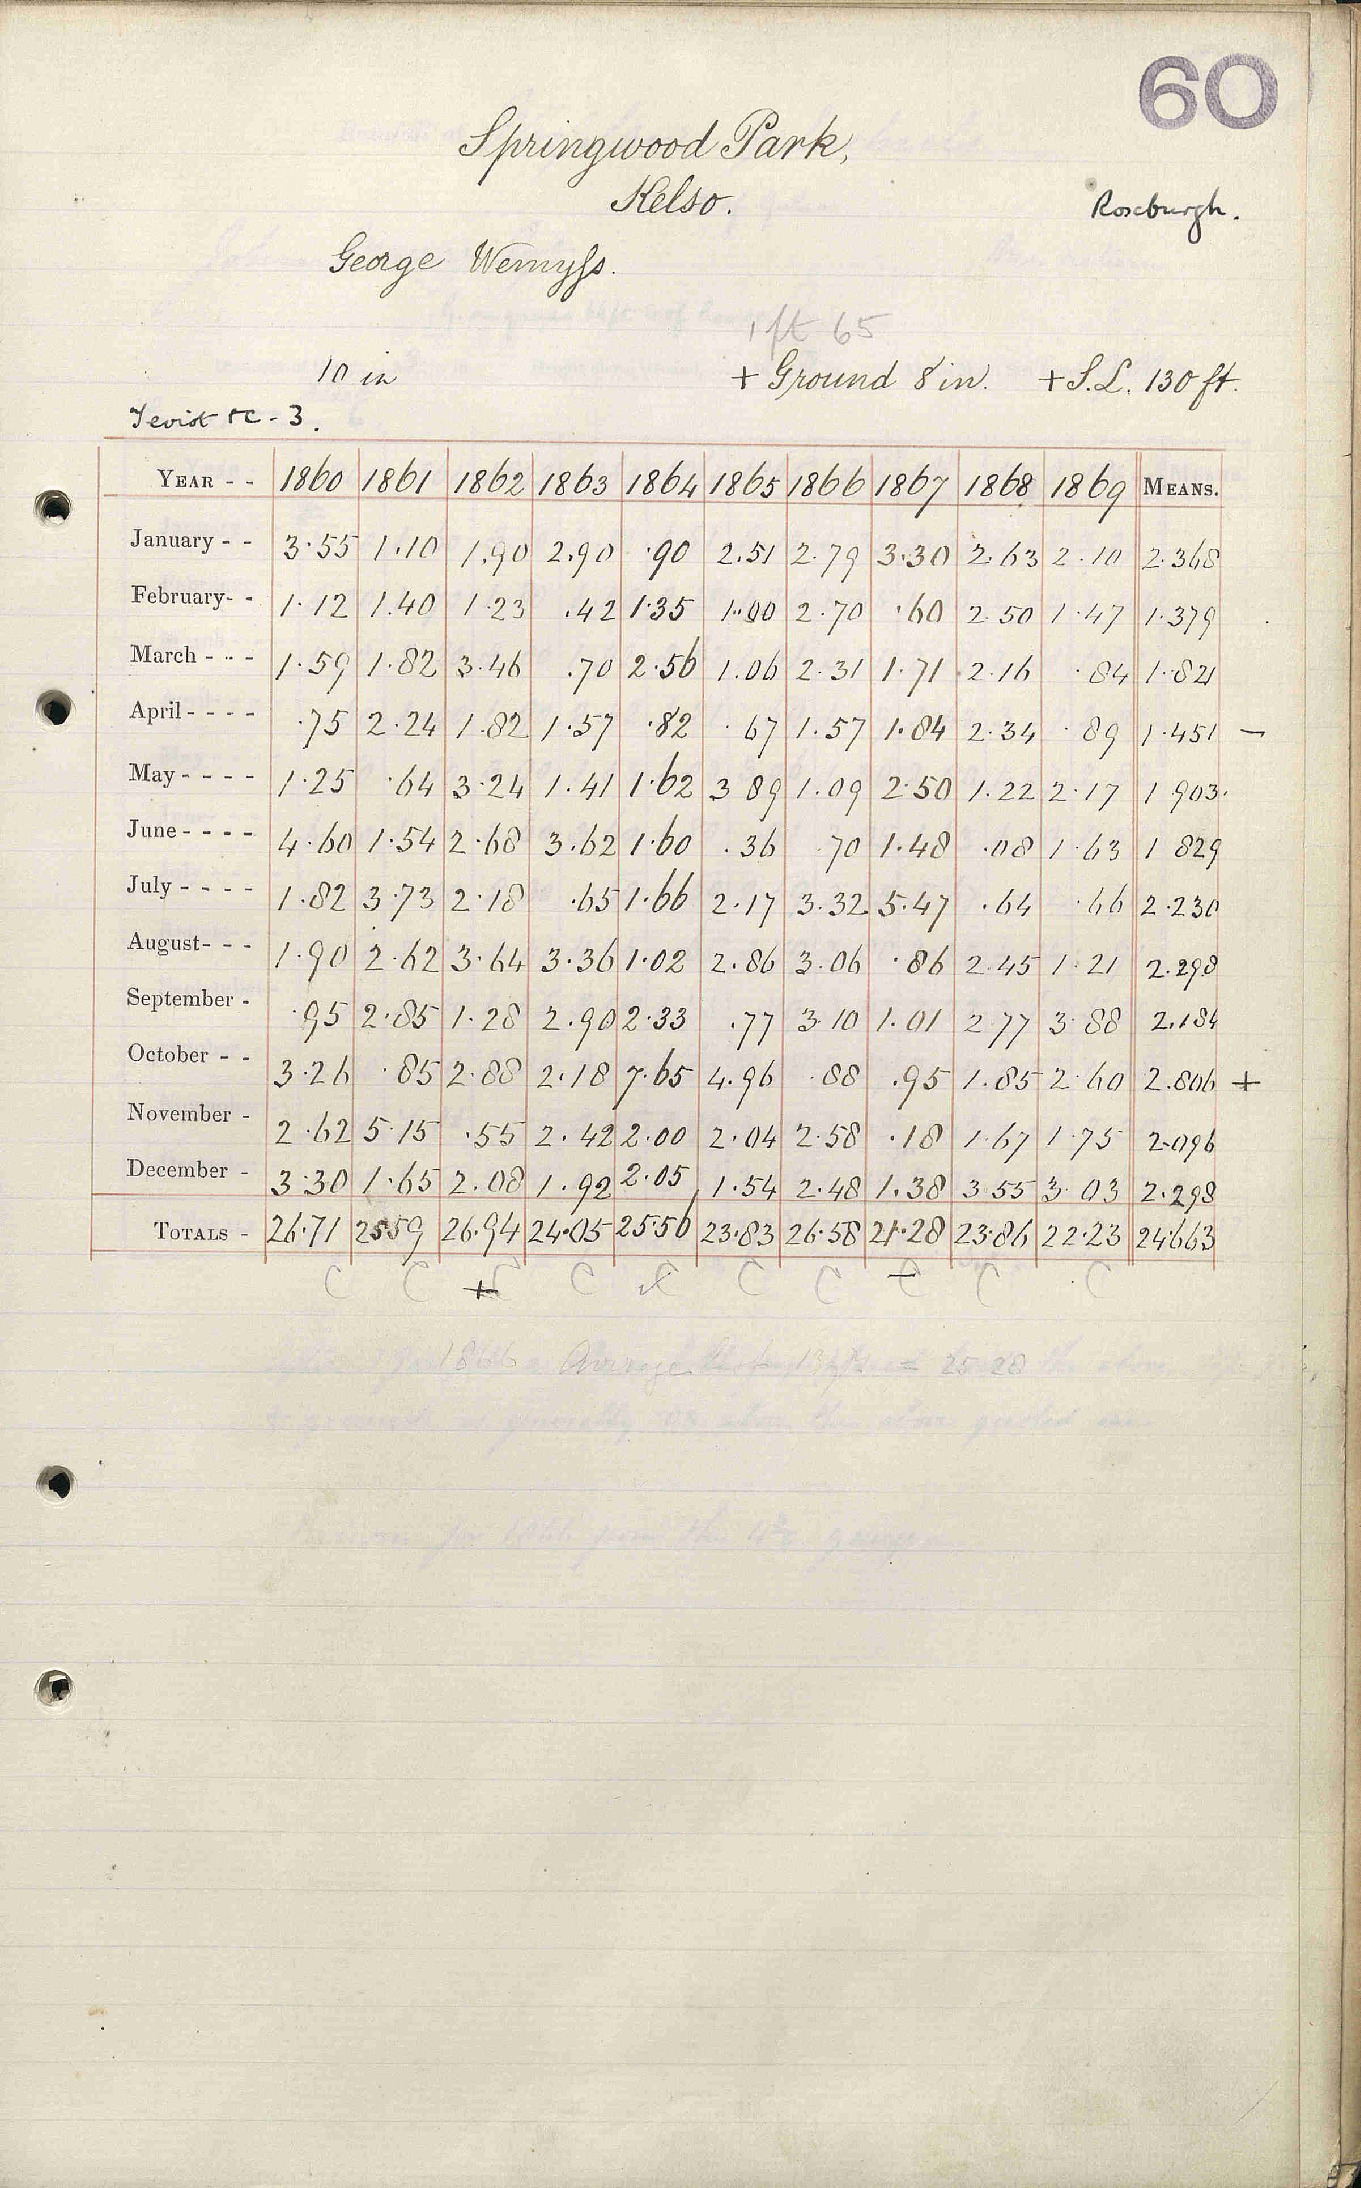 60
Springwood Park,
Kelso.
Roxburgh.
George Wemyss.
1 ft 65
10 in + Ground 8 in. + S.L. 130 ft.
Teviot &c - 3.
YEAR - - 1860 1861 1862 1863 1864 1865 1866 1867 1868 1869 MEANS.
January - - 3.55 1.10 1.90 2.90 .90 2.51 2.79 3.30 2.63 2.10 2.368
February- - 1.12 1.40 1.23 .42 1.35 1.00 2.70 .60 2.50 1.47 1.379
March - - - 1.59 1.82 3.46 .70 2.56 1.06 2.31 1.71 2.16 .84 1.821
April - - - - .75 2.24 1.82 1.57 .82 .67 1.57 1.84 2.34 .89 1.451 -
May - - - - 1.25 .64 3.24 1.41 1.62 3 89 1.09 2.50 1.22 2.17 1 903.
June - - - - 4.60 1.54 2.68 3.62 1.60 .36 .70 1.48 .08 1.63 1 829
July - - - - 1.82 3.73 2.18 .65 1.66 2.17 3.32 5.47 .64 .66 2.230
August- - - 1.90 2.62 3.64 3.36 1.02 2.86 3.06 .86 2.45 1.21 2.298
September - .95 2.85 1.28 2.90 2.33 .77 3.10 1.01 2 77 3.88 2.184
October - - 3.26 .85 2.88 2.18 7.65 4.96 .88 .95 1.85 2.60 2.806 +
November - 2.62 5.15 .55 2.42 2.00 2.04 2.58 .18 1.67 1.75 2.096
December - 3.30 1.65 2.08 1.92 2.05 1.54 2.48 1.38 3.55 3.03 2.298
TOTALS - 26.71 25.59 26.94 24.05 25.56 23.83 26.58 21.28 23.86 22.23 24.663
C C + C C C C C - C C C
1866 Average = 25.28